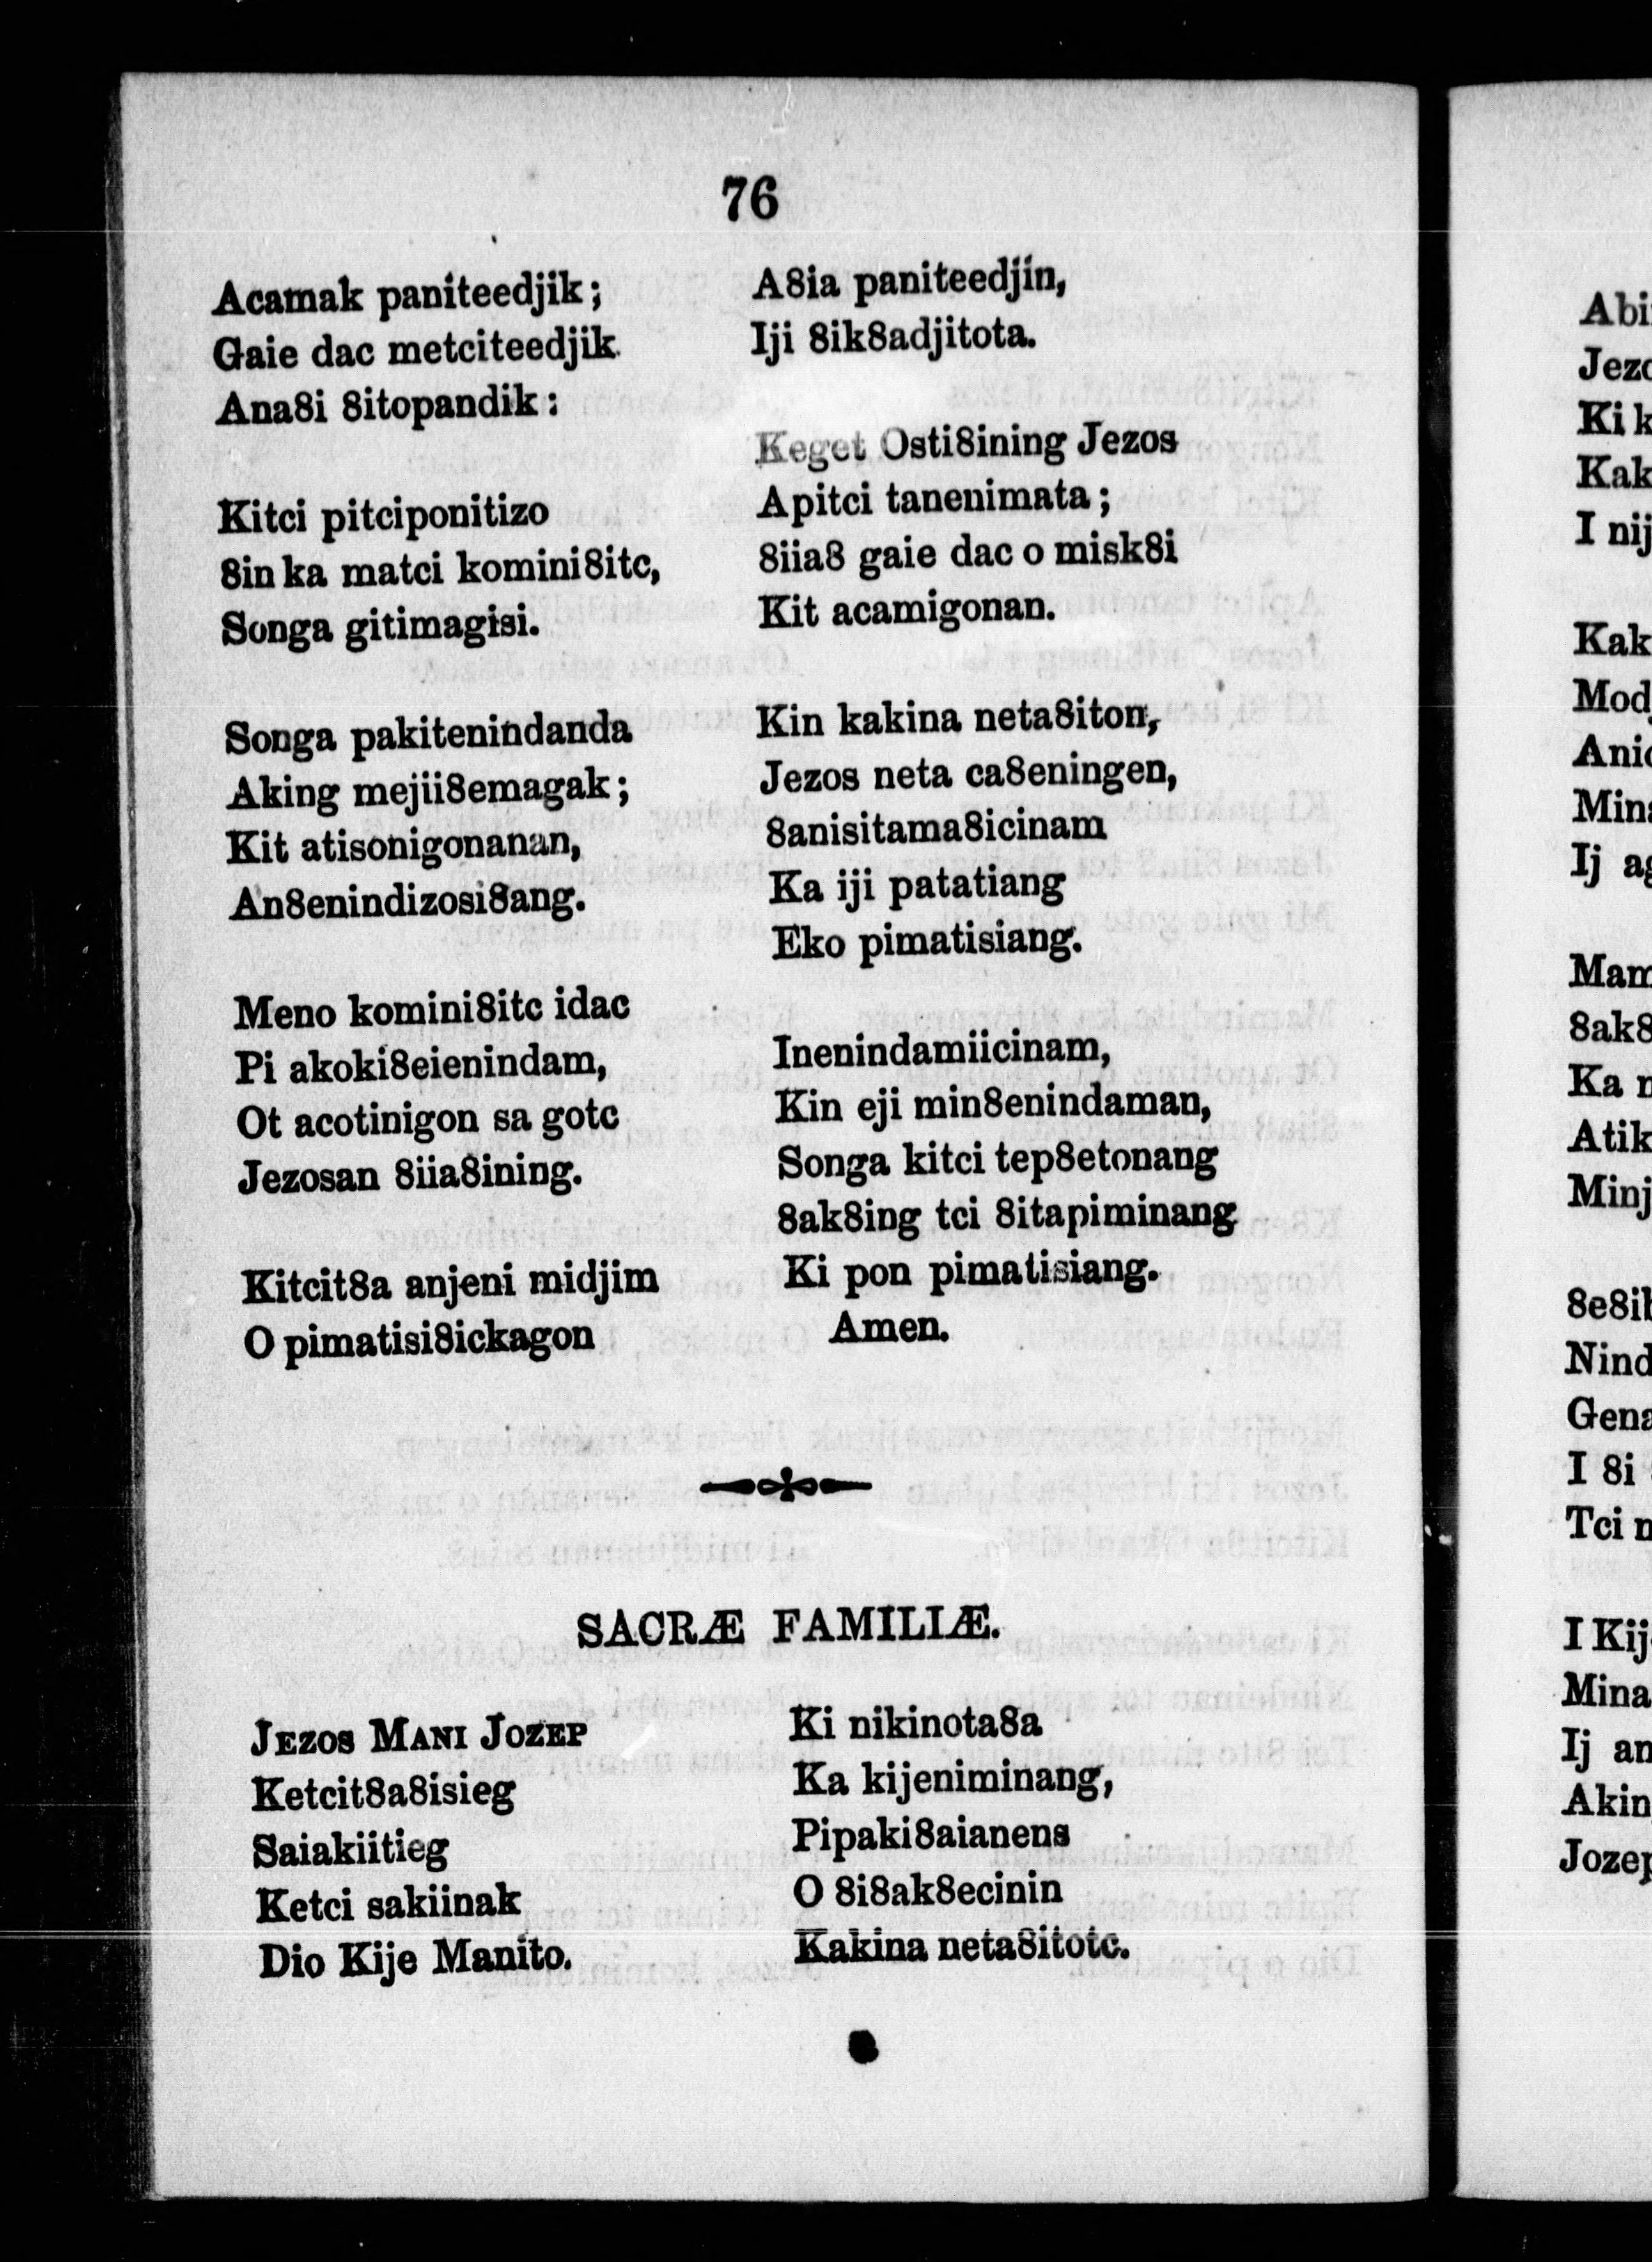 76
Acamak paniteedjik;
Gaie dac metciteedjik
Ana8i 8itopandik:
Kitci pitciponitizo
8in ka matci komini8itc,
Songa gitimagisi.
Songa pakitenindanda
Aking mejii8emagak;
Kit atisonigonanan,
An8enindizosi8ang.
Meno komini8itc idac
Pi akoki8eienindam,
Ot acotinigon sa gotc
Jezosan 8iia8ining.
Kitcit8a anjeni midjim
O pimatisi8ickagon
A8ia paniteedjin,
Iji 8ik8adjitota.
Keget Osti8ining Jezos
Apitci tanenimata;
8iia8 gaie dac o misk8i
Kit acamigonan.
Kin kakina neta8iton,
Jezos neta ca8eningen,
8anisitama8icinam
Ka iji patatiang
Eko pimatisiang.
Inenindamiicinam,
Kin eji min8enindaman,
Songa kitci tep8etonang
8ak8ing tci 8itapiminang
Ki pon pimatisiang.
Amen.
SACRÆ FAMILIÆ.
JEZOS MANI JOZEP
Ketcit8a8isieg
Saiakiitieg
Ketci sakiinak
Dio Kije Manito.
Ki nikinota8a
Ka kijeniminang,
Pipaki8aianens
O 8i8ak8ecinin
Kakina neta8itotc.
Abi
Jezo
Ki k
Kak
I nij
Kak
Mod
Anic
Mina
Ij ag
Mam
8ak8
Ka n
Atik
Minj
8e8ib
Nind
Gena
I 8i
Tci n
I Kij
Mina
Ij an
Akin
Jozep